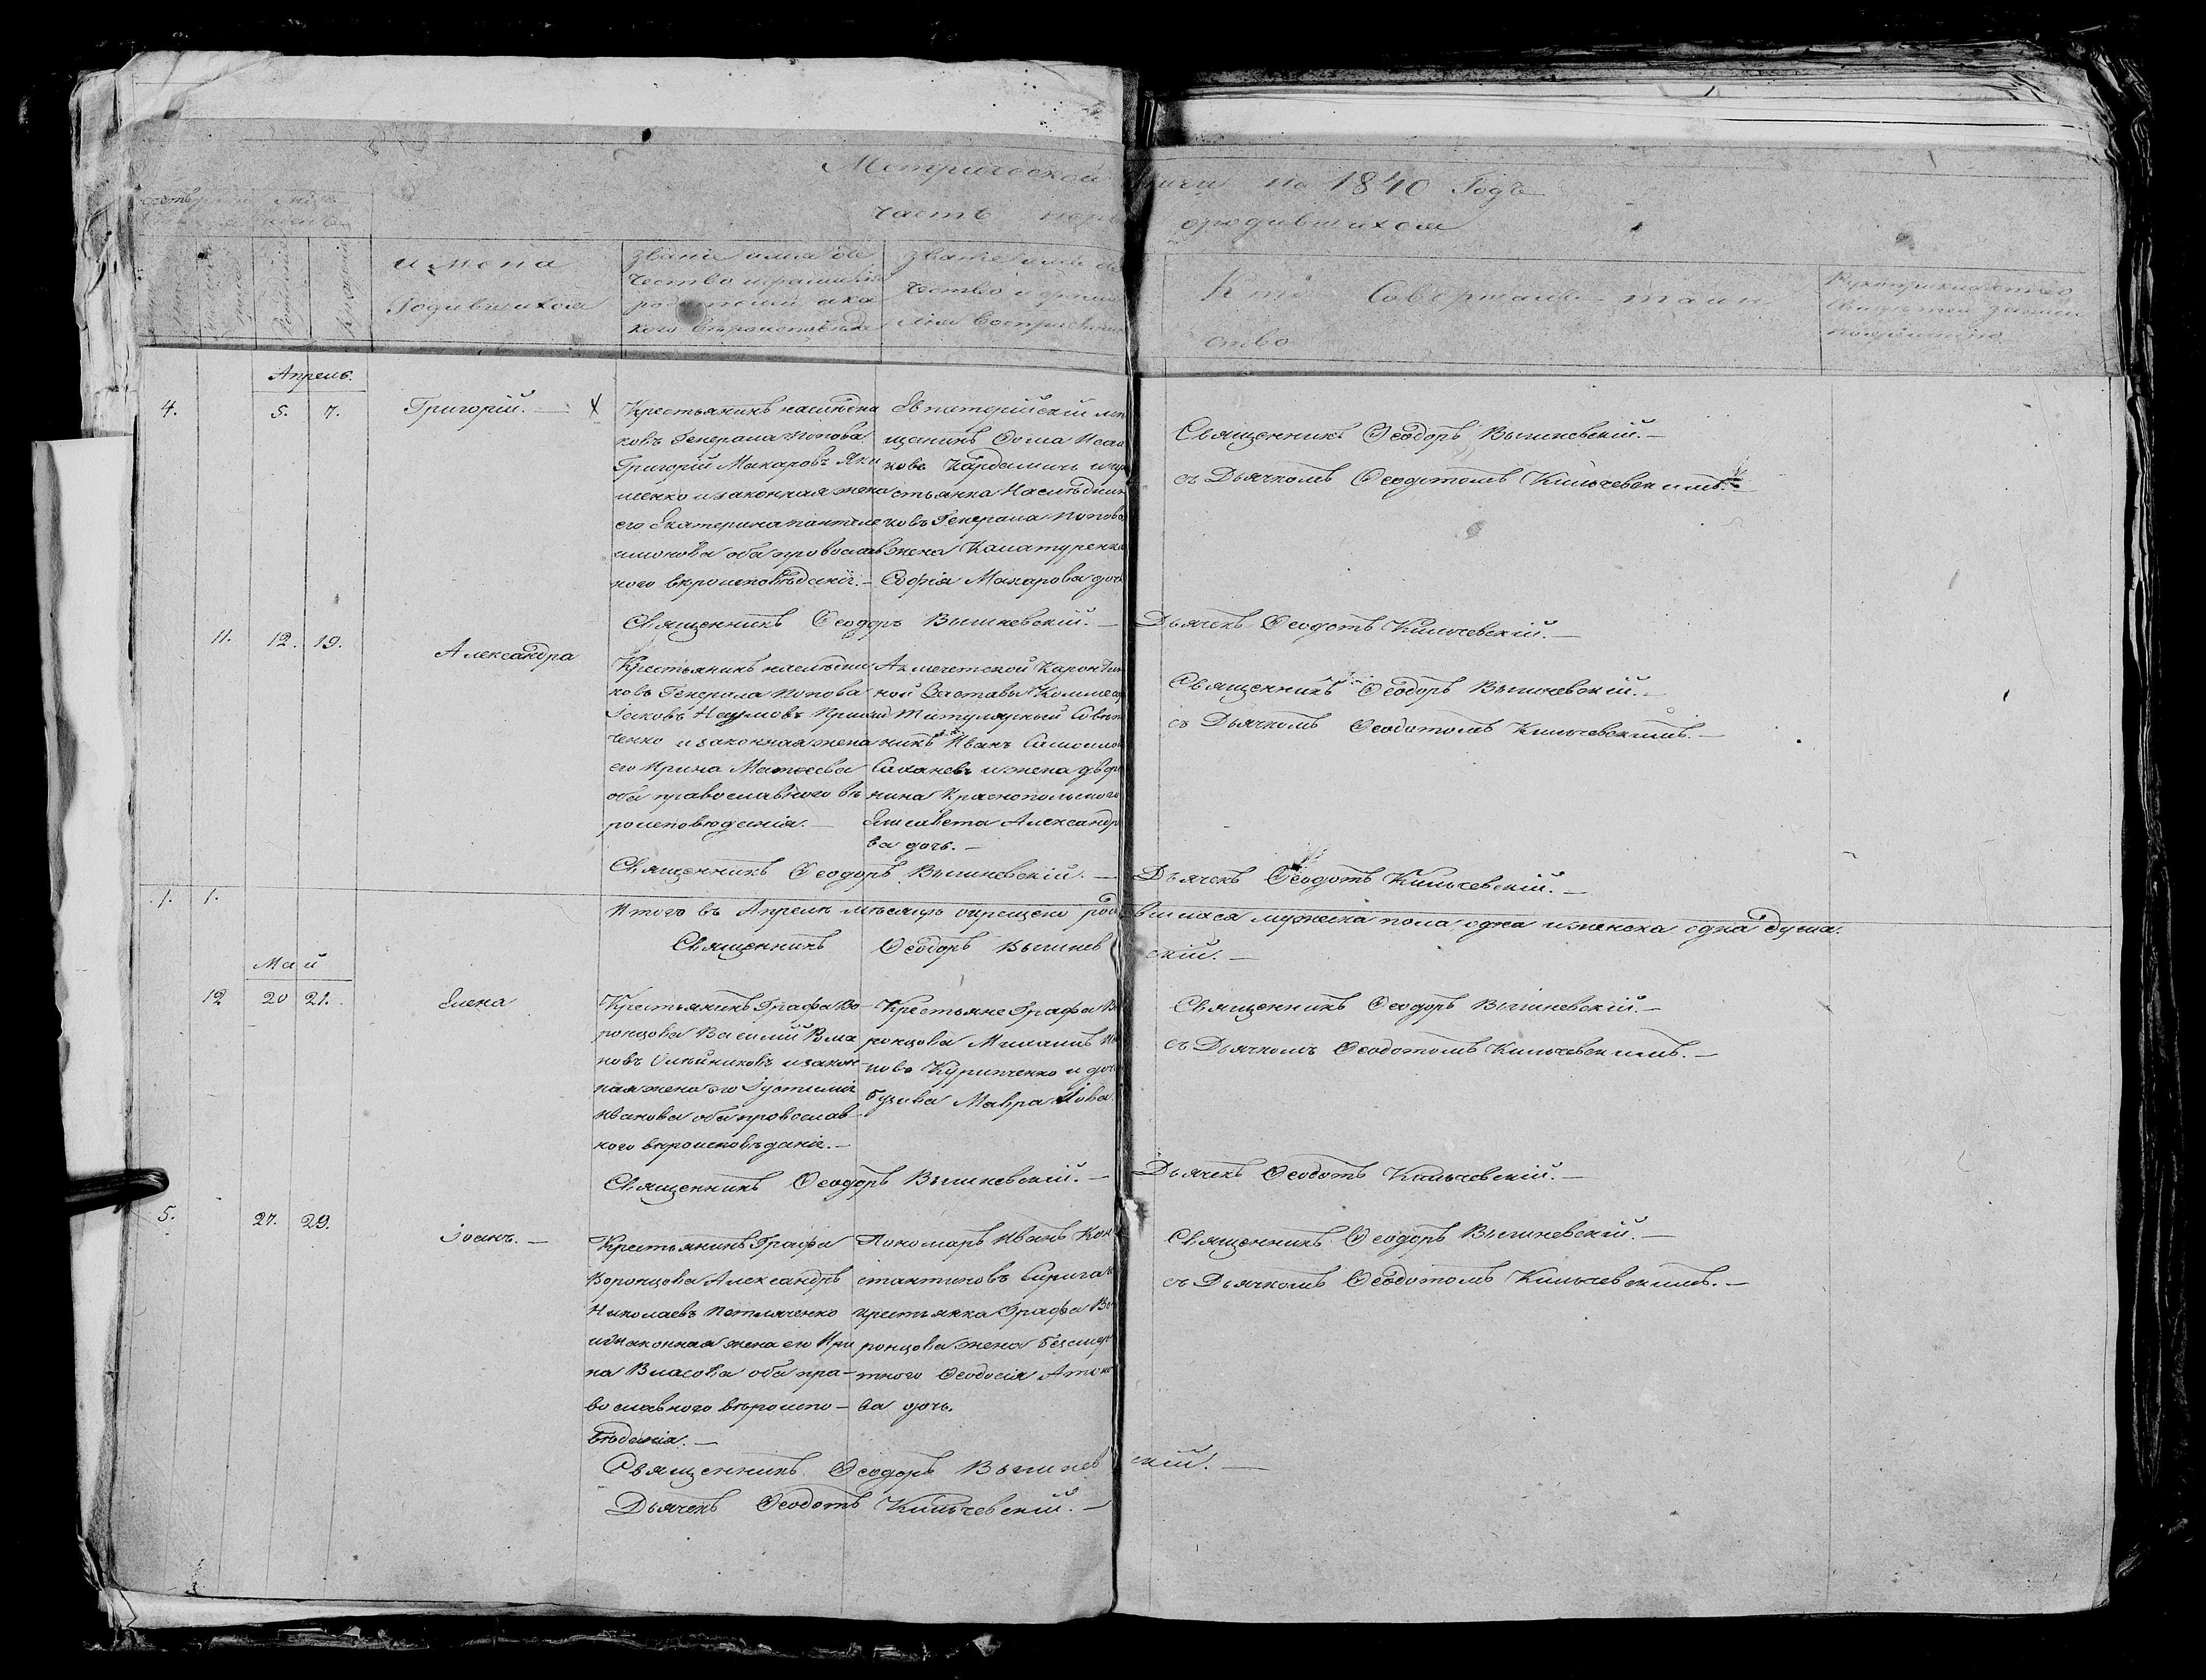 Метрической книги на 1840 Годъ
часть перв орадившихся
имена
Родившихся
Званіе имя оте
чество и фамилія
родителей и ка
кого вероисповѣда
Званіе имя оте
чество и фами
лія воспріемни
Кто Совершалъ таин
ство
Апрель.
4.
5.
7.
Григорій. —
Крестьянинъ наслѣдни
ковъ Генерала Попова
Григорій Макаровъ Яки
менко и законная жена
его Екатерина Пантеле
имонова оба православ
ного вероисповѣданія. —
Евпаторійскій мѣ
щанинъ Фома Исаа
ковъ Кардамичь и кре
стьянка Наслѣдни
ковъ Генерала Попова
жена Каматуренка
Софія Макарова доч
Священникъ Ѳеодоръ Вышневскій. —
съ Дьячкомъ Ѳеодотомъ Кильчевскимъ. —
Священникъ Ѳеодоръ Вышневскій. —
Дьячекъ Ѳеодотъ Кильчевскій. —
11.
12.
19.
Александра
Крестьянинъ наслѣдни
ковъ Генерала Попова
Іаковъ Наумовъ Приход
ченко и законная жена
его Ирина Матѳеева
оба православного вѣ
роисповѣденія. —
Акмечетской Карантин
ной Заставы Коммиса
Титулярный Совѣт
никъ Иванъ Самоило
Сахневъ и жена дво
нина Краснопольского
Елисавета Александр
ва дочь. —
Священникъ Ѳеодоръ Вышневскій. —
съ Дьячкомъ Ѳеодотомъ Кильчевскимъ. —
Священникъ Ѳеодоръ Вышневскій. —
Дьячекъ Ѳеодотъ Кильчевскій. —
1.
1.
Итого въ Апрелѣ мѣсяцѣ окрещено роди вшихся мужеска пола одна и женска одна душа.
Священникъ Ѳеодоръ Вышнев скій. —
Май
12
20
21.
Елена
Крестьянинъ Графа Во
ронцова Василій Рома
новъ Олейниковъ и закон
ная жена его Іустинія
Иванова оба православ
ного вероисповѣданія. —
Крестьяне Графа Во
ронцова Михаилъ Ив
новъ Куриченко и доч
Бузова Мавра Іова
Священникъ Ѳеодоръ Вышневскій. —
съ Дьячкомъ Ѳеодотомъ Кильчевскимъ. —
Священникъ Ѳеодоръ Вышневскій. —
Дьячекъ Ѳеодотъ Кильчевскій. —
5.
27.
29.
Іоанъ. —
Крестьянинъ Графа
Воронцова Александръ
Николаевъ Петляченко
и законная жена его Ири
на Власова оба пра-
вославного вѣроиспо-
вѣданія. —
Пономарь Иванъ Кон
стантиновъ Сирига и
крестьянка Графа Во
ронцова жена Безсмер
тного Ѳеодосія Антоно
ва дочь.
Священникъ Ѳеодоръ Вышневскій. —
съ Дьячкомъ Ѳеодотомъ Кильчевскимъ. —
Священникъ Ѳеодоръ Вышнев скій. —
Дьячекъ Ѳеодотъ Кильчевскій. —